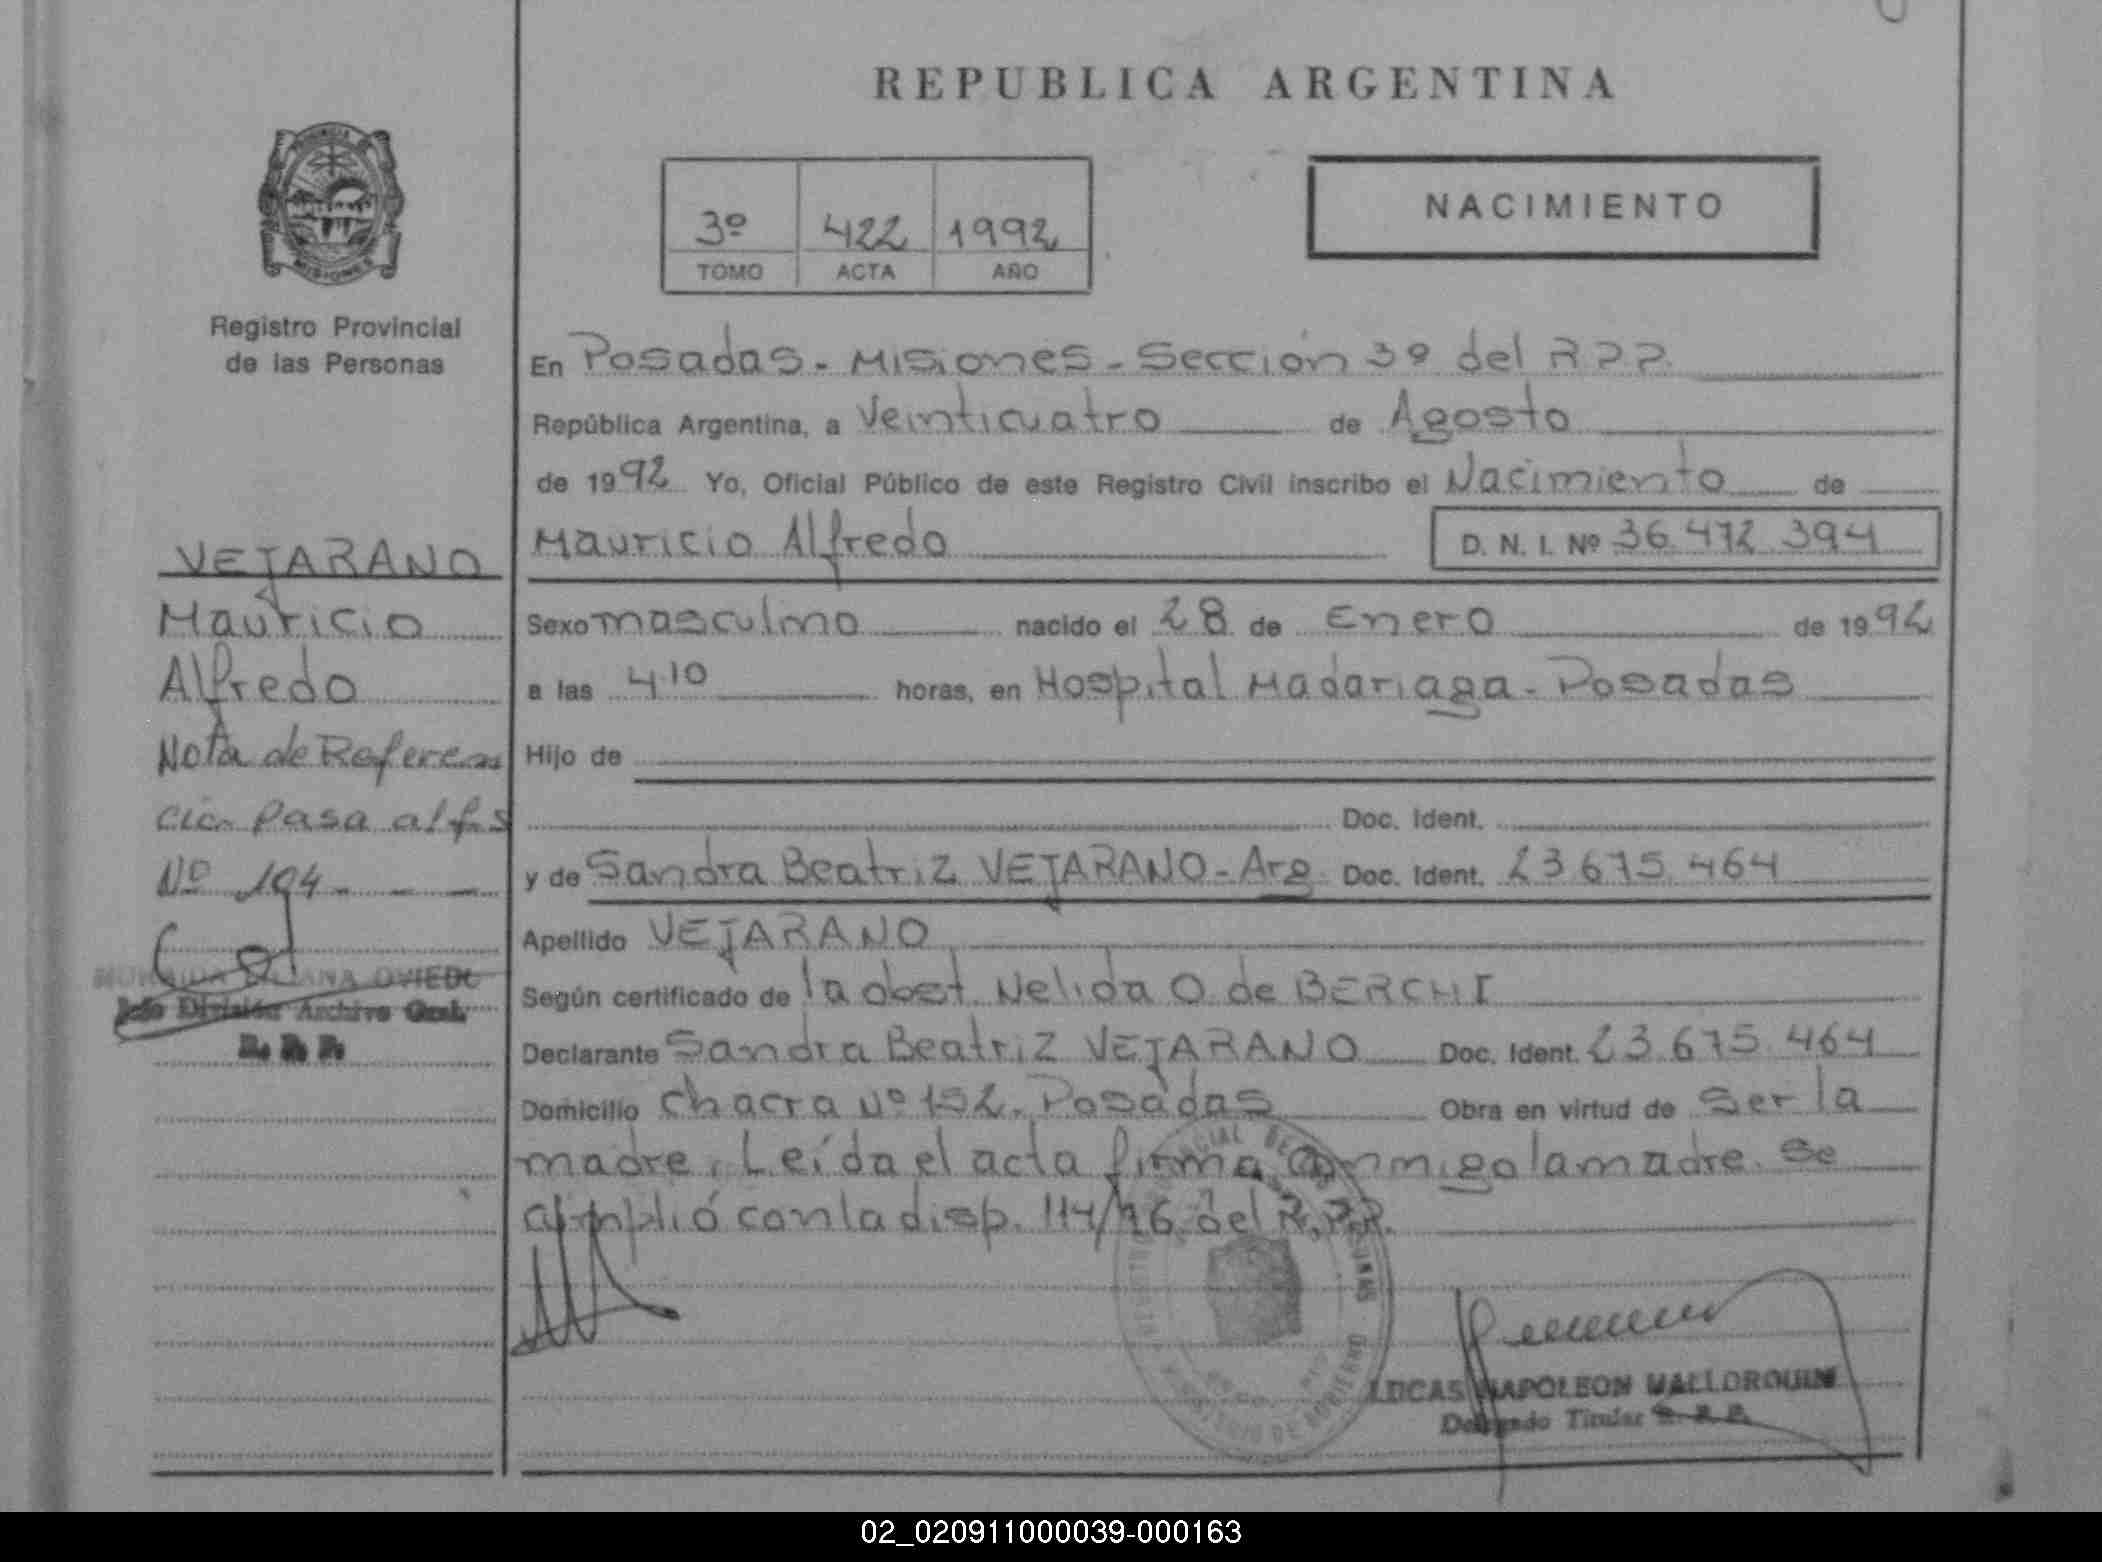 REPUBLICA ARGENTINA
PROVINCIA
MISIONES
Registro Provincial
de las Personas
3º 422 1992
TOMO ACTA AÑO
NACIMIENTO
En Posadas - Misiones - Sección 3º del R.P.P.
República Argentina, a Veinticuatro de Agosto
de 1992 Yo, Oficial Público de este Registro Civil inscribo el Nacimiento de
Mauricio Alfredo D. N. I. Nº 36.472.394
Sexo masculino nacido el 28 de Enero de 1992
a las 4.10 horas, en Hospital Madariaga - Posadas
Hijo de
Doc. Ident.
y de Sandra Beatriz VEJARANO - Arg. Doc. Ident. 23.675.464
Apellido VEJARANO
Según certificado de la obst. Nelida O. de BERCHI
Declarante Sandra Beatriz VEJARANO Doc. Ident. 23.675.464
Domicilio Chacra Nº 152. Posadas Obra en virtud de ser la
madre. Leída el acta firma conmigo la madre. Se
amplió con la disp. 114/ del R.P.P.
VEJARANO
Mauricio
Alfredo
Nota de Referen
cia Pasa al fs
Nº 194
LIANA OVIEDO
Jefe División Archivo Gral.
R. P. P.
MINISTERIO DE GOBIERNO
LUCAS NAPOLEON MALLORQUIN
Delegado Titular R. P. P.
02_020911000039-000163